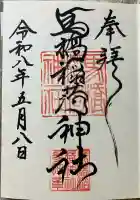 奉拝
馬橋稲荷神社
令和八年五月八日